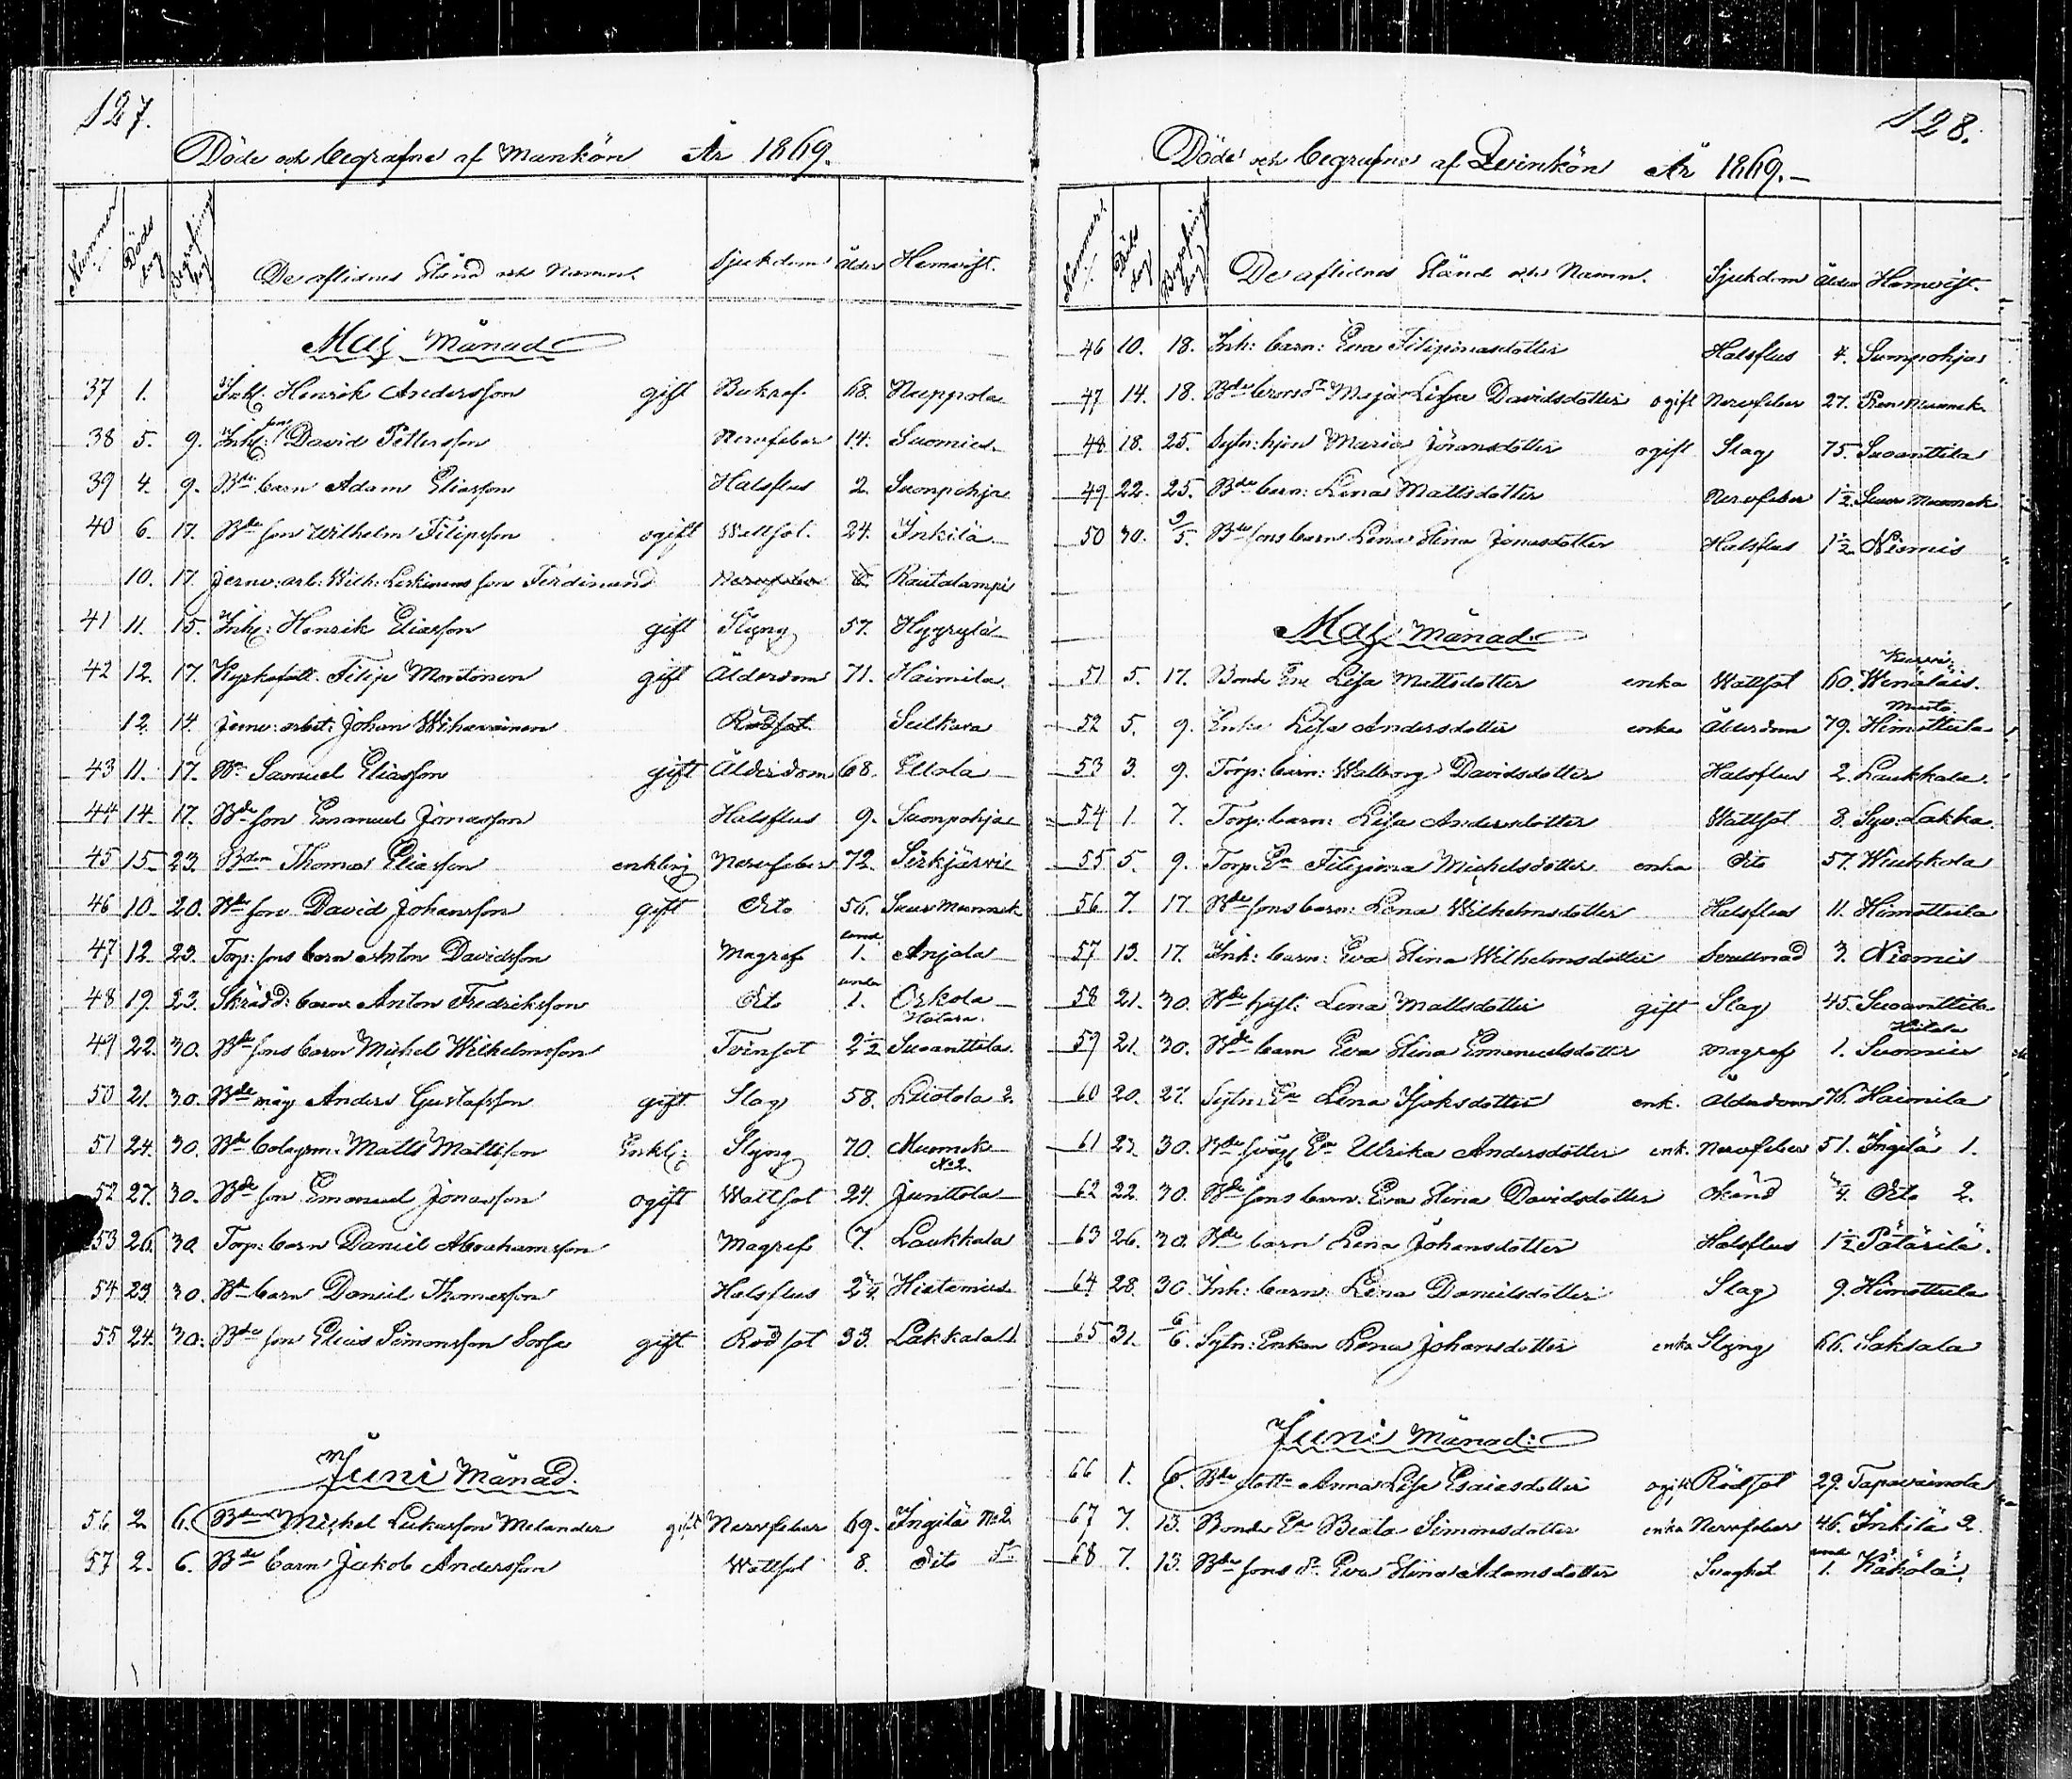 127.
Döde och begrafne af Mankön År 1869.
Nummer Döds dag Begrafnings dag De aflidnes Stånd och Namn. Sjukdom Ålder Hemvist.
Maj Månad
37 1. Inh: Henrik Andersson gift Bukref. 68. Nuppola
38 5. 9. Inh: son David Pettersson Nervfeber 14. Suomies
39 4. 9. Bde barn Adam Eliasson Halsflus 2. Sompohja
40 6. 17. Bde son Wilhelm Filipsson ogift Wattsot. 24. Inkilä
10. 17. Jernv: arb: Wilh: Leskinens son Ferdinand Nervfeber Rautalampi
41 11. 15. Inh: Henrik Eliasson gift Styng 57. Hyyrylä
42 12. 17. Kyrkofatt. Filip Montonen gift Ålderdom 71. Haimila.
12. 14. Jernv: arbet: Johan Wihavainen Rödsot Sulkava
43 11. 17. Samuel Eliasson gift Ålderdom 68. Ellola
44 14. 17. Bde son Emanuel Jonasson Halsflus 9. Sompohja
45 15 23. Bden Thomas Eliasson enkling Nervfeber 72. Sirkjärvi
46 10. 20. Bde son David Johansson gift Dito 56. Suur Mummek
47 12. 23. Torp: sons barn Anton Davidsson Magref und. 1. Anjala
48 19. 23. Skrädd: barn Anton Fredriksson Dito under 1. Orkola
49 22. 30. Bde sons barn Michel Wilhelmsson Tvinsot 2 1/2 Suoanttila.
50 21. 30. Bde måg Anders Gustafsson gift Slag 58. Liotola 2.
51 24. 30. Bde bolagsm. Matts Mattsson Enkl: Styng 70. Mummek No 2.
52 27. 30. Bde son Emanuel Jonasson ogift Wattsot 24. Junttola
53 26. 30. Torp: barn Daniel Abrahamsson Magref 7. Laukkala
54 23. 30. Bde barn Daniel Thomasson Halsflus Hietamies
55 24. 30. Bde son Elias Simonsson gift Rödsot 33. Lakkala
Juni Månad.
56 2. 6. Bden Michel Lukasson Melander gift Nervfeber 69. Ingilä No 2.
57 2. 6. Bde barn Jakob Andersson Wattsot 8. Dito
128.
Döde och begrafne af Qvinkön År 1869.
Nummer Döds dag Begrafnings dag De aflidnes Stånd och Namn. Sjukdom Ålder Hemvist.
46 10. 18. Inh: barn: Eva Filipinasdotter Halsflus 4. Sumpohja
47 14. 18. Bde Maja Lisa Davidsdotter ogift Nervfeber 27. Pien Mummek.
48 18. 25. Sytn: hjon Maria Göransdotter ogift Slag 75. Suoanttila
49 22. 25. Bde barn: Lena Mattsdotter Nervfeber 1 1/2 Suur Mummek
50 30. 2/5. Bde sons barn Lena Stina Jonasdotter Halsflus 1 1/2 Niemis
Maj Månad:
51 5. 17. Bonde Enk Lisa Mattsdotter enka Wattsot 60. Wenäläis.
52 5. 9. Enka Lisa Andersdotter enka Ålderdom 79. Himottula
53 3. 9. Torp: barn: Walborg Davidsdotter Halsflus 2. Laukkala.
54 1. 7. Torp: barn: Lisa Andersdotter Wattsot 8. Syv: Lakka.
55 5. 9. Torp: Ea Filipina Michelsdotter enka Dito 57. Wiuhkola
56 7. 17. Bde sons barn: Lena Wilhelmsdotter Halsflus 11. Himottula
57 13. 17. Inh: barn: Eva Stina Wilhelmsdotter Svullnad 3. Niemis
58 21. 30. Bde Lena Mattsdotter gift Slag 45. Suoanttila
59 21. 30. Bde barn Eva Stina Emanuelsdotter Magref 1. Suomies
60 20. 27. Sytn: Ea Lena Isaksdotter enk. Ålderdom 76. Haimila
61 23. 30. Bde Ea Ulrika Andersdotter enk. Nervfeber 51. Ingilä 1.
62 22. 30. Bde sons barn: Eva Stina Davidsdotter Okänd Dito 2.
63 26. 30. Bde barn Lena Johansdotter Halsflus 1 1/2 Pätärilä.
64 28. 30. Inh: barn: Lena Danielsdotter Slag 9. Himottula
65 31. 6/6. Sytn: Enkan Lena Johansdotter enka Styng 66. Saksala
Juni Månad:
66 1. 6. Bde dott: Anna Lisa Esaiasdotter ogift Rödsot 29. Tapavainola
67 7. 13. Bonde Ea Beata Simonsdotter enka Nervfeber 46. Inkilä 2.
68 7. 13. Bde sons Eva Stina Adamsdotter Svaghet und 1. Kähölä.